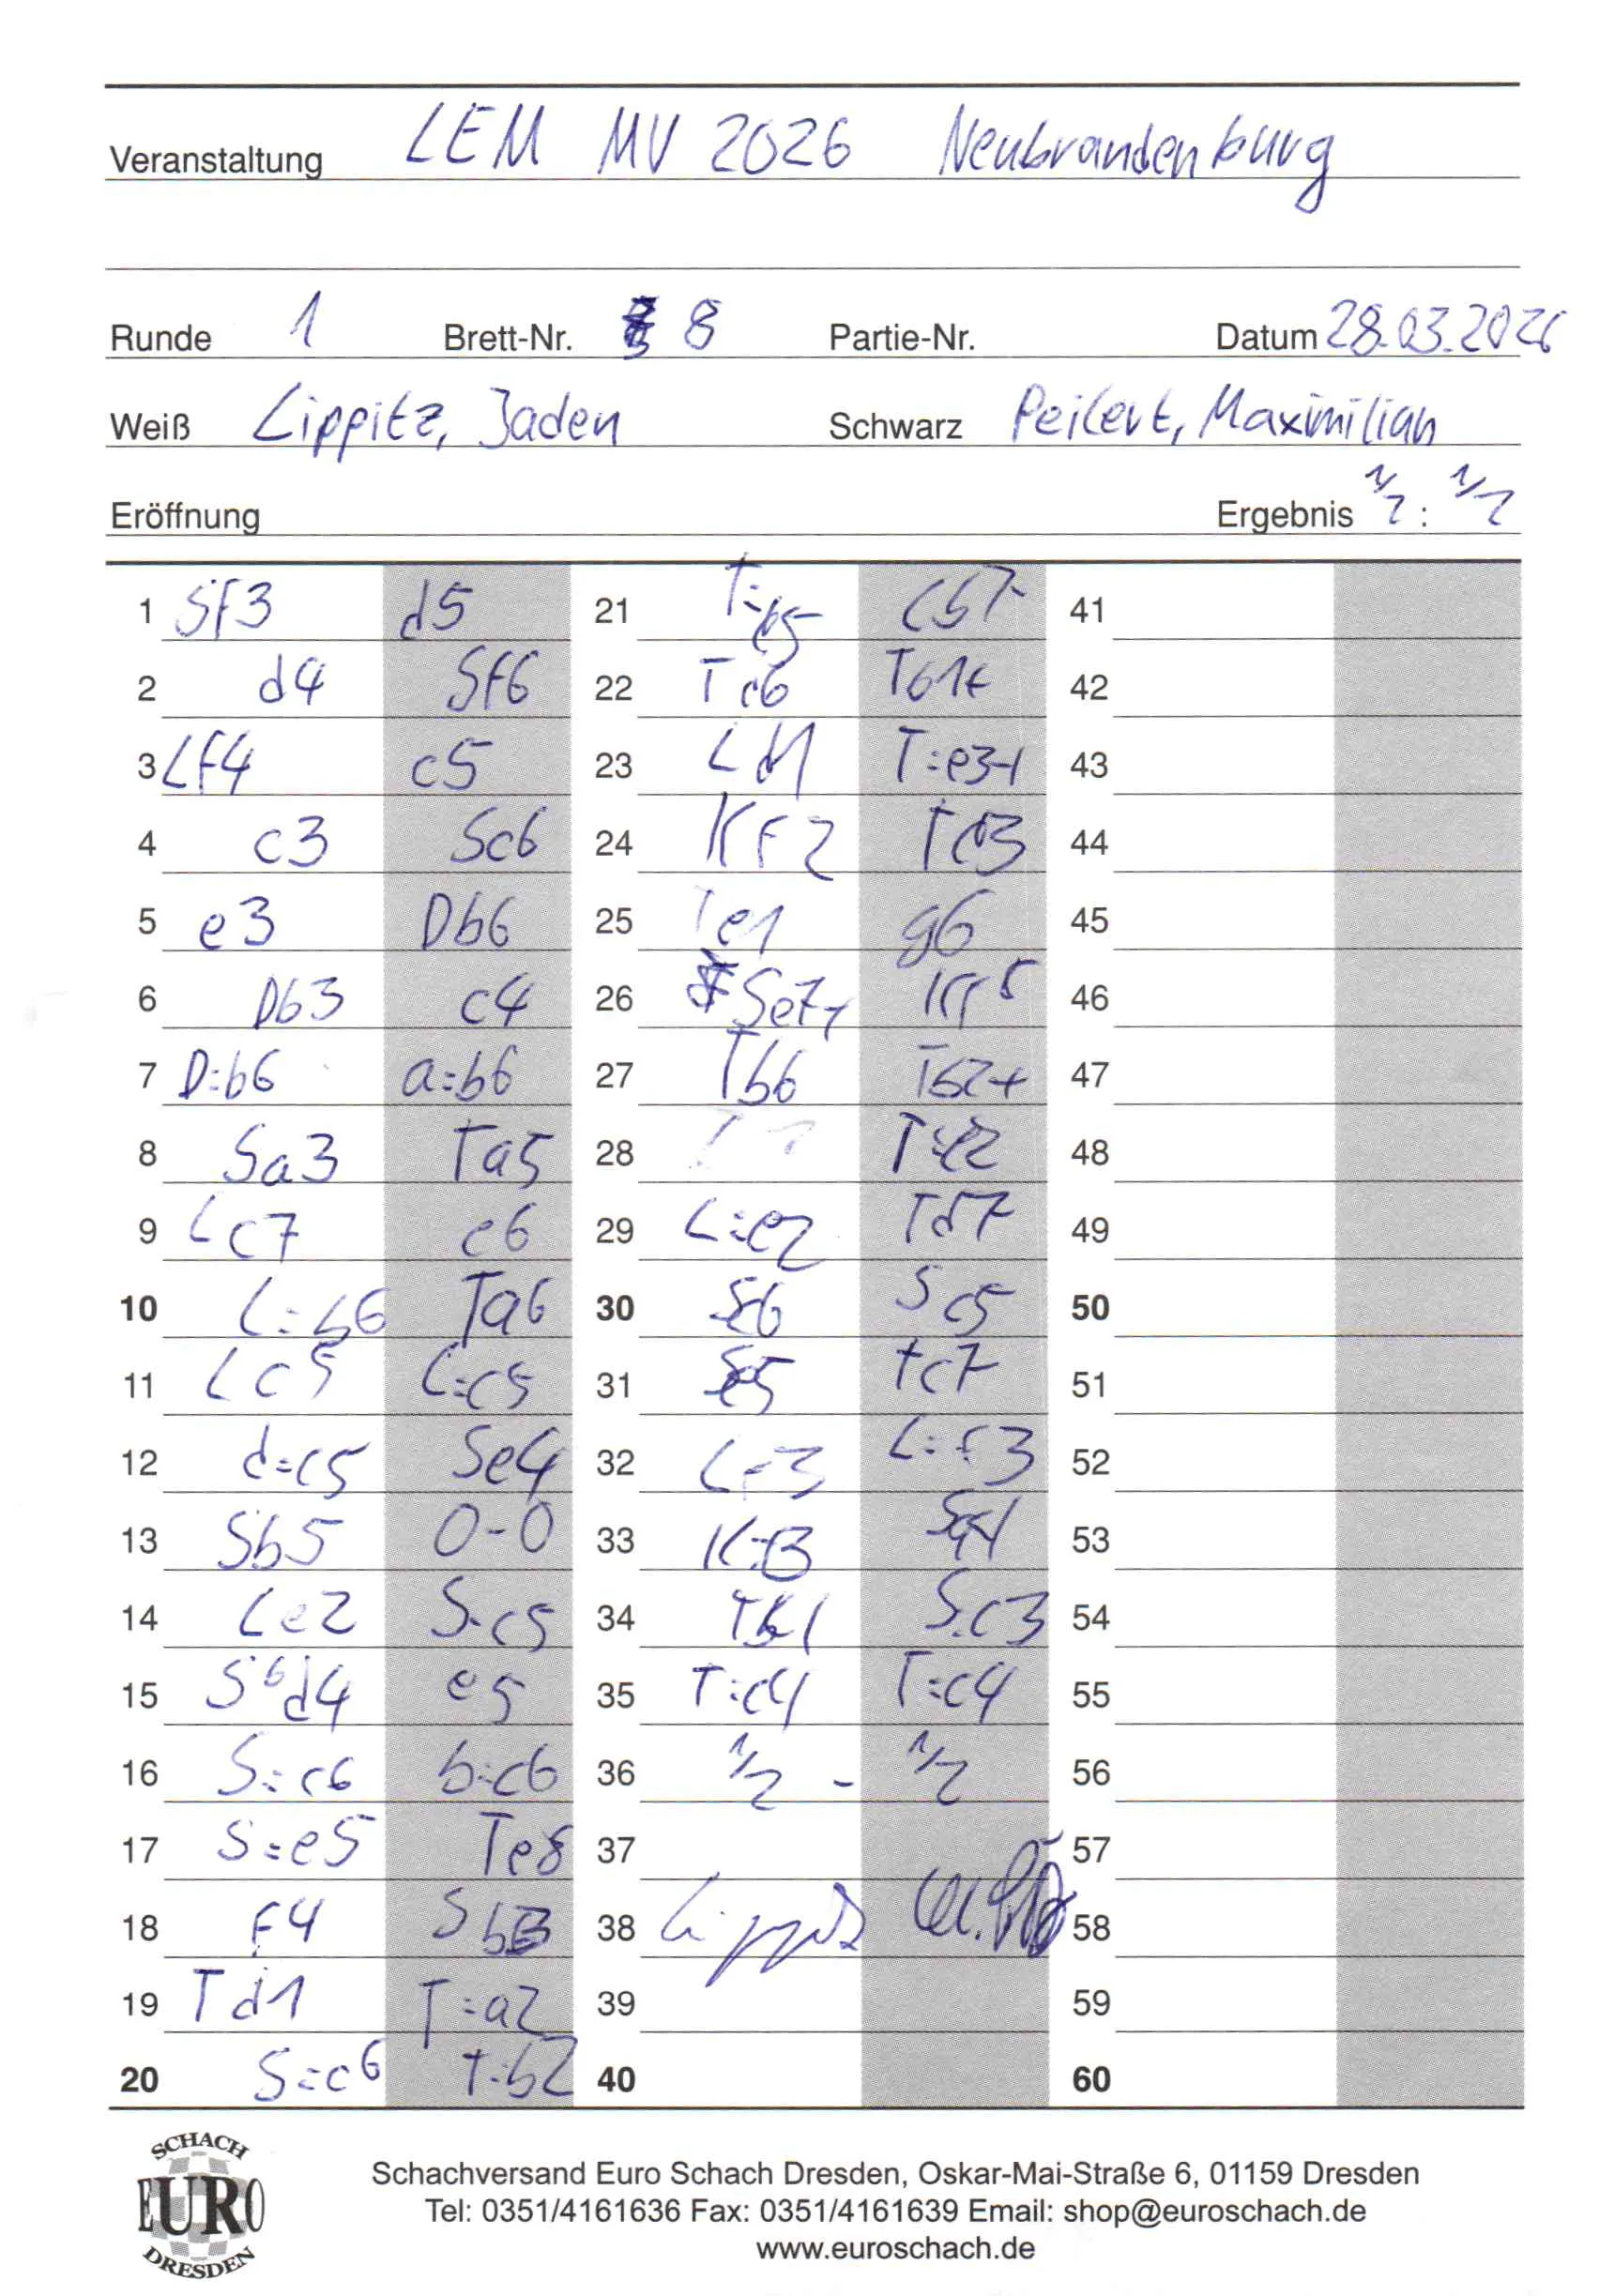 Veranstaltung LEM MV 2026 Neubrandenburg
Runde 1 Brett-Nr. 8 Partie-Nr. Datum 28.03.2026
Weiß Lippitz, Jaden Schwarz Peilert, Maximilian
Eröffnung Ergebnis 1/2 : 1/2
1 Sf3 d5 21 T:c5 41
2 d4 Sf6 22 Tc6 Tb1+ 42
3 Lf4 c5 23 Ld1 T:e3+ 43
4 c3 Sc6 24 Kf2 44
5 e3 Db6 25 Te1 g6 45
6 Db3 c4 26 Se7+ 46
7 D:b6 a:b6 27 Tb6 Tb2+ 47
8 Sa3 Ta5 28 T:e2 48
9 Lc7 e6 29 L:e2 Td7 49
10 L:b6 Ta6 30 Sc5 50
11 Lc5 L:c5 31 Tc7 51
12 d:c5 Se4 32 Lf3 L:f3 52
13 Sb5 0-0 33 K:f3 53
14 Le2 S:c5 34 S:c3 54
15 Sbd4 e5 35 T:c4 T:c4 55
16 S:c6 b:c6 36 1/2 - 1/2 56
17 S:e5 Te8 37 57
18 f4 Sb3 38 58
19 Td1 T:a2 39 59
20 S:c6 T:b2 40 60
SCHACH
EURO
DRESDEN
Schachversand Euro Schach Dresden, Oskar-Mai-Straße 6, 01159 Dresden
Tel: 0351/4161636 Fax: 0351/4161639 Email: shop@euroschach.de
www.euroschach.de